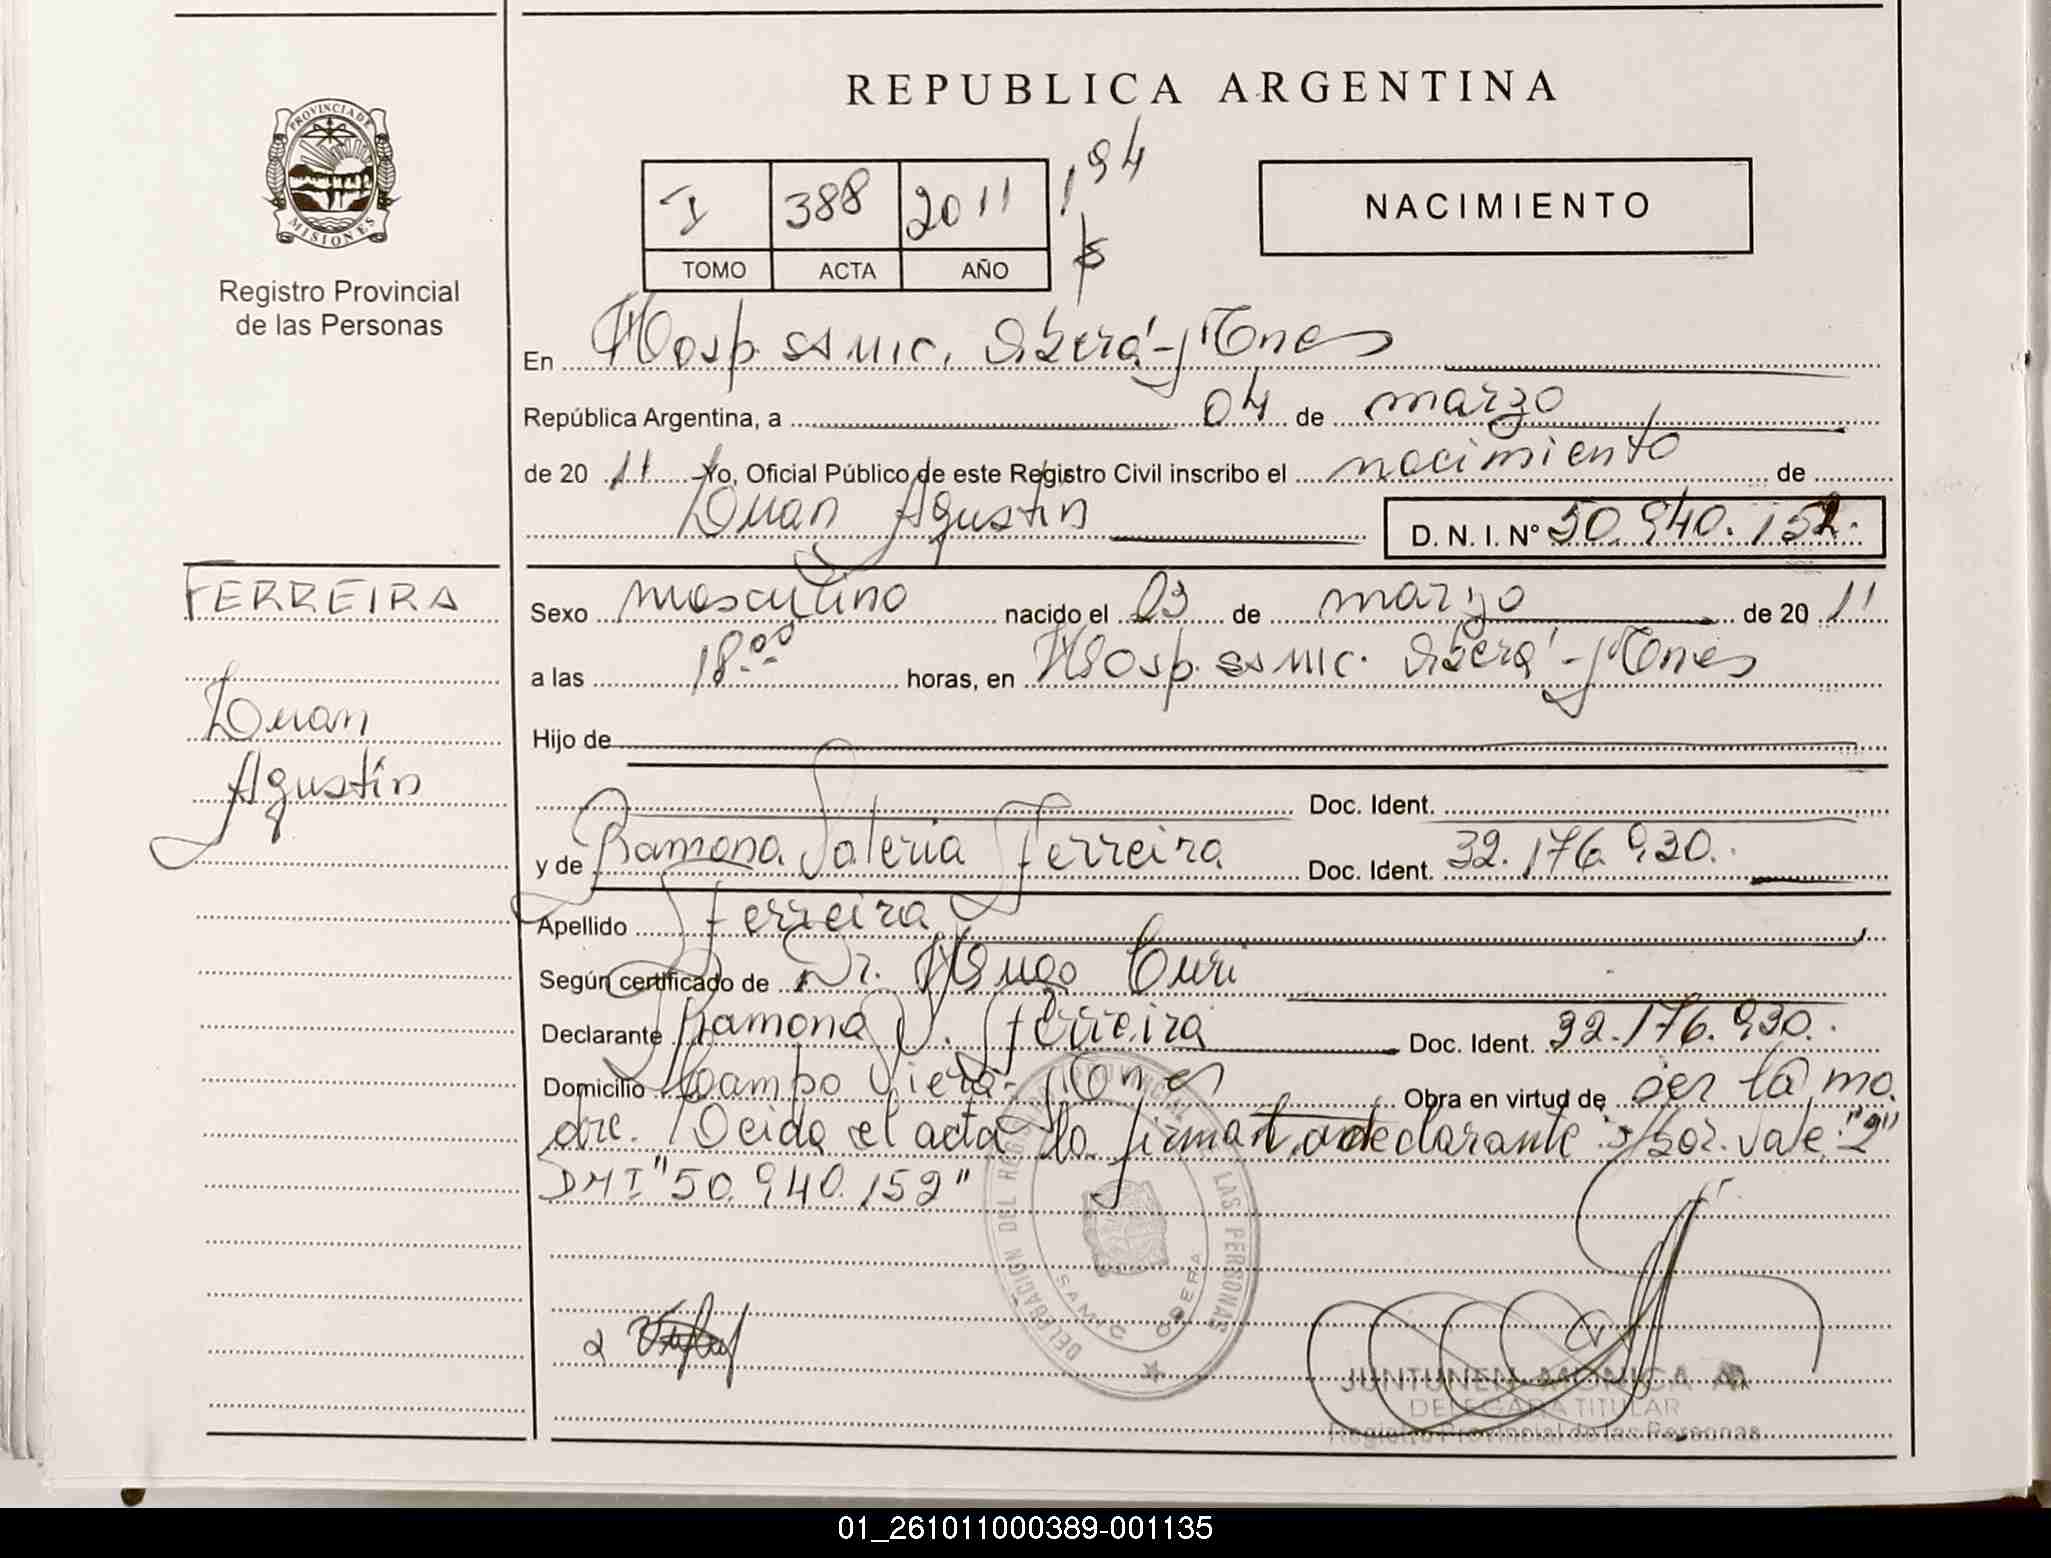 REPUBLICA ARGENTINA
PROVINCIA DE
MISIONES
Registro Provincial
de las Personas
I 388 2011 194
TOMO ACTA AÑO
NACIMIENTO
En Hosp. SAMIC. Oberá-Mnes
República Argentina, a 04 de marzo
de 20 11 Yo, Oficial Público de este Registro Civil inscribo el nacimiento de
Juan Agustín D. N. I. Nº 50.940.152.
FERREIRA
Juan
Agustín
Sexo masculino nacido el 03 de marzo de 20 11
a las 18:00 horas, en Hosp. SAMIC. Oberá-Mnes
Hijo de
Doc. Ident.
y de Ramona Valeria Ferreira Doc. Ident. 32.176.930.
Apellido Ferreira
Según certificado de Dr. Hugo Curi
Declarante Ramona V. Ferreira Doc. Ident. 32.176.930.
Domicilio Campo Viera-Mnes Obra en virtud de ser la ma
dre. Leida el acta la firman declarante Vale: "2"
DNI "50.940.152"
DELEGACION DEL REGISTRO PROVINCIAL DE LAS PERSONAS
SAMIC OBERA
JUNTUNEN MONICA A
DELEGADA TITULAR
Registro Provincial de las Personas
01_261011000389-001135